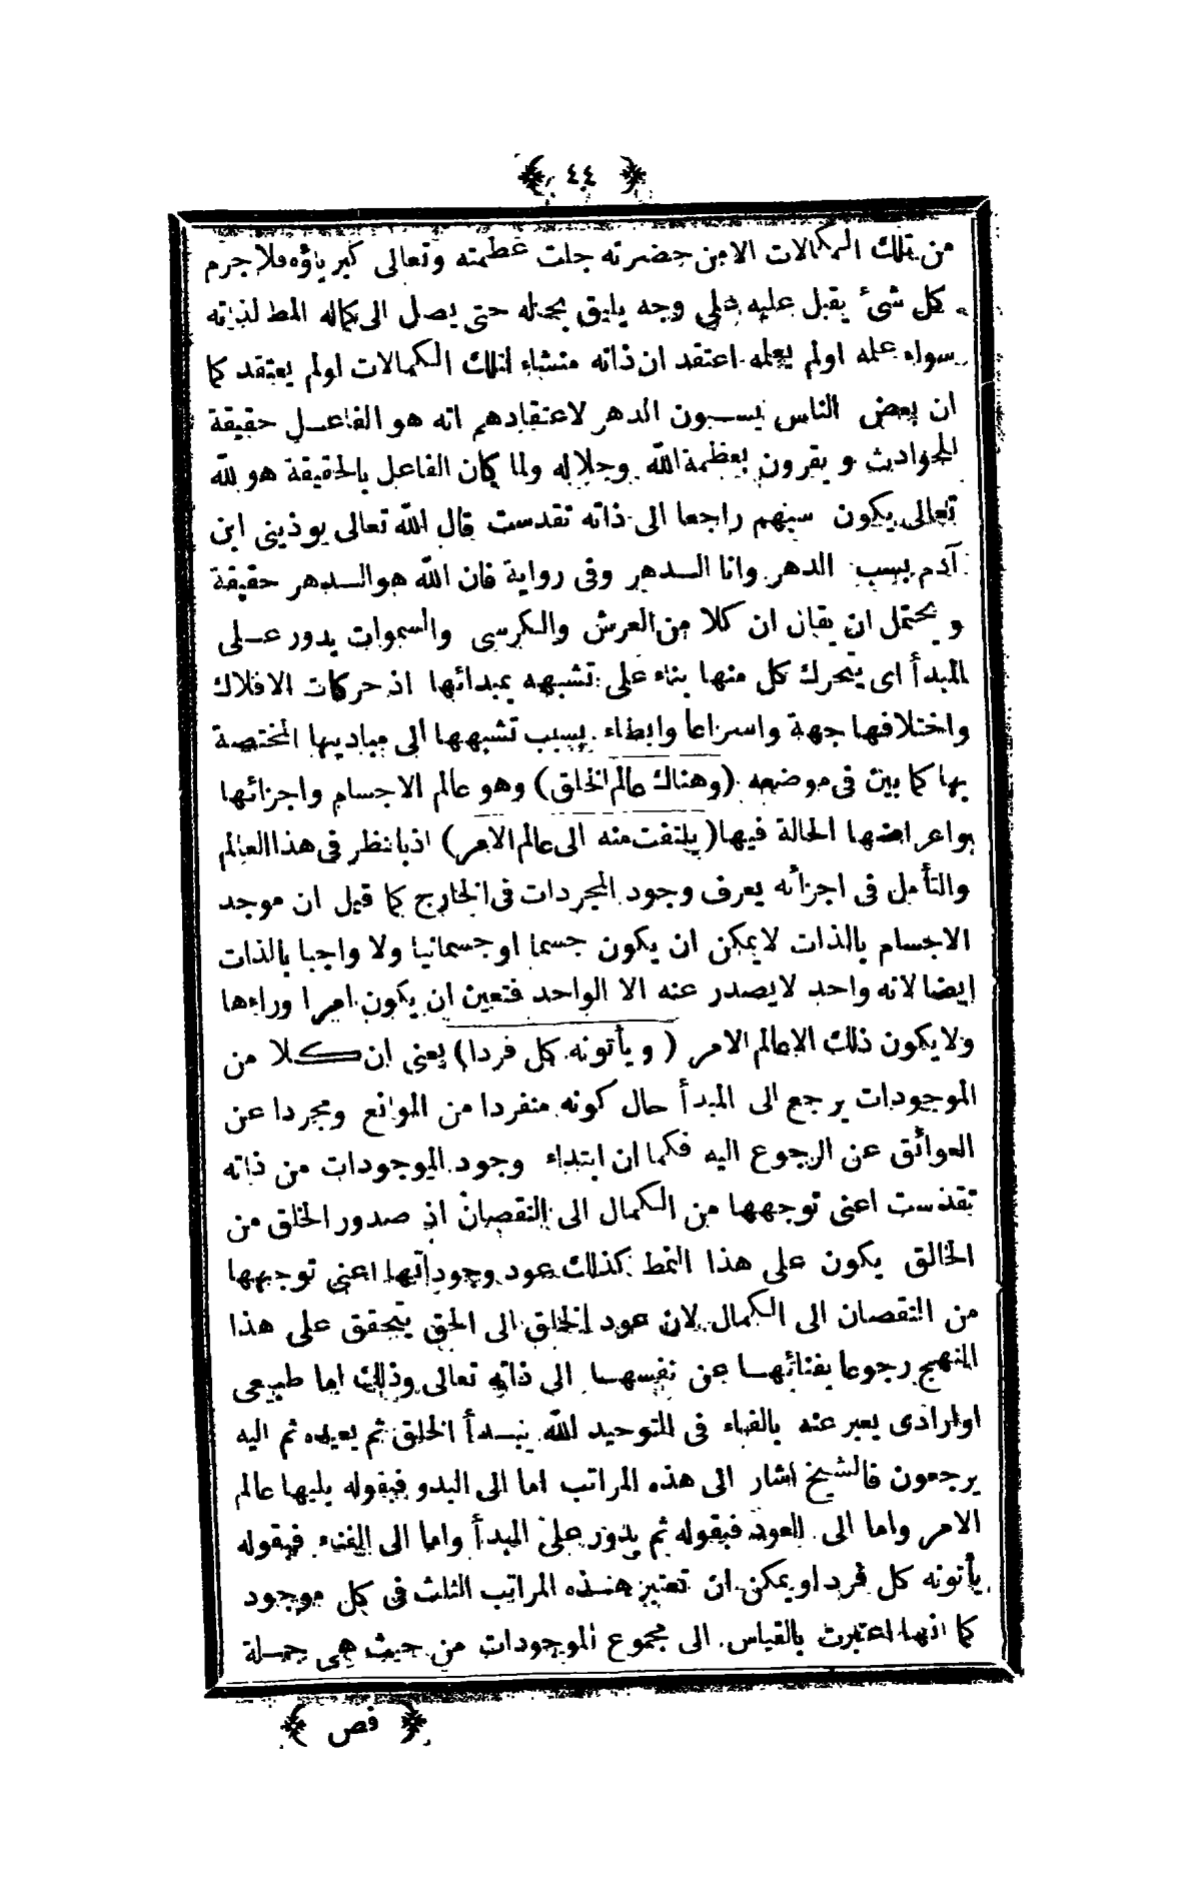 ﴿ ٤٤ ﴾
من تلك الكمالات الا من حضرته جلت عظمته وتعالى كبرياؤه فلا جرم
كل شئ يقبل عليه على وجه يليق بحاله حتى يصل الى كماله المط لذاته
سواء علمه اولم يعلمه اعتقد ان ذاته منشاء لتلك الكمالات اولم يعتقد كما
ان بعض الناس يسبون الدهر لاعتقادهم انه هو الفاعل حقيقة
للحوادث و يقرون بعظمة الله وجلاله ولما كان الفاعل بالحقيقة هو لله
تعالى يكون سبهم راجعا الى ذاته تقدست قال الله تعالى يوذينى ابن
آدم يسب الدهر وانا الدهر وفى رواية فان الله هو الدهر حقيقة
و يحتمل ان يقان ان كلا من العرش والكرسى والسموات يدور على
المبدأ اى يتحرك كل منها بناء على تشبهه بمبدائها اذ حركات الافلاك
واختلافها جهة واسراعا وابطاء بسبب تشبهها الى مباديها المختصة
بها كما بين فى موضعه (وهناك عالم الخلق) وهو عالم الاجسام واجزائها
واعراضها الحالة فيها (يلتفت منه الى عالم الامر) اذ بانظر فى هذا العالم
والتأمل فى اجزائه يعرف وجود المجردات فى الخارج كما قيل ان موجد
الاجسام بالذات لايمكن ان يكون جسما اوجسمانيا ولا واجبا بالذات
ايضا لانه واحد لايصدر عنه الا الواحد فتعين ان يكون امرا وراءها
ولايكون ذلك الاعالم الامر (و يأتونه كل فردا) يعنى ان كلا من
الموجودات يرجع الى المبدأ حال كونه منفردا من الموانع ومجردا عن
العوائق عن الرجوع اليه فكما ان ابتداء وجود الموجودات من ذاته
تقدست اعنى توجهها من الكمال الى النقصان اذ صدور الخلق من
الخالق يكون على هذا النمط كذلك عود وجوداتها اعنى توجهها
من النقصان الى الكمال لان عود الخلق الى الحق يتحقق على هذا
المنهج رجوعا بفنائها عن نفسها الى ذاته تعالى وذلك اما طبيعى
اوارادى يعبر عنه بالفناء فى التوحيد لله يبدأ الخلق ثم يعيده ثم اليه
يرجعون فالشيخ اشار الى هذه المراتب اما الى البدو فبقوله يليها عالم
الامر واما الى العود فبقوله ثم يدور على المبدأ واما الى الفناء فبقوله
يأتونه كل فرد او يمكن ان تعتبر هذه المراتب الثلث فى كل موجود
كما انها اعتبرت بالقياس الى مجموع الموجودات من حيث هى جملة
﴿ فص ﴾